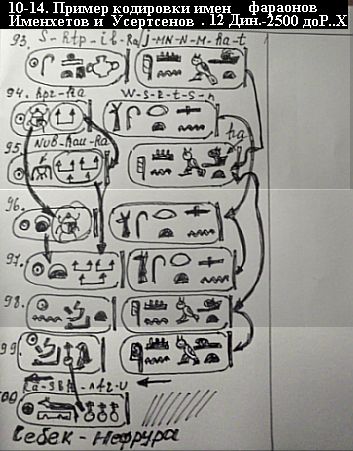 10-14. Пример кодировки имен фараонов
Именхетов и Усертсенов . 12 Дин.-2500 доР..Х
93. S-htp-ib-Ra/j-MN-N-M-ha-t
94. hpr-ka W-S-R-t-S-n
ha
95. Nub-kau-Ra
96.
97.
98.
99.
Себек-Нефрура